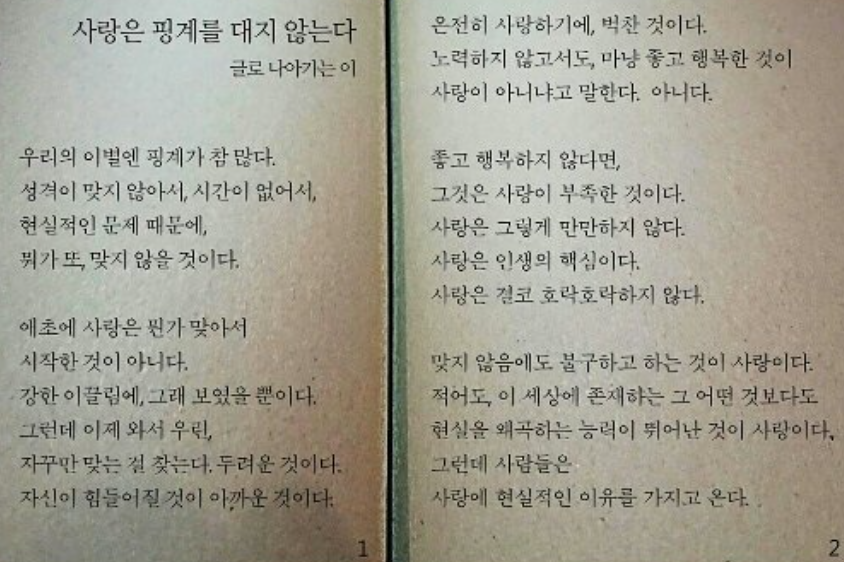 사랑은 핑계를 대지 않는다
글로 나아가는 이
우리의 이별엔 핑계가 참 많다.
성격이 맞지 않아서, 시간이 없어서,
현실적인 문제 때문에,
뭐가 또, 맞지 않을 것이다.
애초에 사랑은 뭔가 맞아서
시작한 것이 아니다.
강한 이끌림에, 그래 보였을 뿐이다.
그런데 이제 와서 우린,
자꾸만 맞는 걸 찾는다. 두려운 것이다.
자신이 힘들어질 것이 아까운 것이다.
1
온전히 사랑하기에, 벅찬 것이다.
노력하지 않고서도, 마냥 좋고 행복한 것이
사랑이 아니냐고 말한다. 아니다.
좋고 행복하지 않다면,
그것은 사랑이 부족한 것이다.
사랑은 그렇게 만만하지 않다.
사랑은 인생의 핵심이다.
사랑은 결코 호락호락하지 않다.
맞지 않음에도 불구하고 하는 것이 사랑이다.
적어도, 이 세상에 존재하는 그 어떤 것보다도
현실을 왜곡하는 능력이 뛰어난 것이 사랑이다.
그런데 사람들은
사랑에 현실적인 이유를 가지고 온다.
2